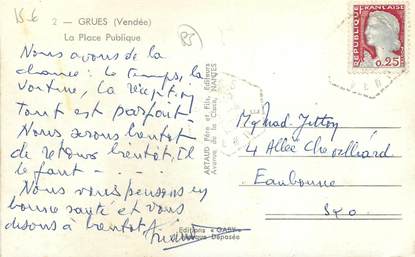 15-6
2 — GRUES (Vendée)
La Place Publique
85
Nous avons de la
chance : le temps, la
voiture, la réception
tout est parfait
Nous serons bientôt
de retour bientôt, Il
le faut - - -
Nous vous pensons en
bonne santé et vous
disons à bientôt
ARTAUD Père et Fils, Éditeurs
Avenue de la Close, NANTES
Editions « GABY »
Déposée
REPUBLIQUE FRANÇAISE
0,25
POSTES
4 Allée
Eaubonne
S&O